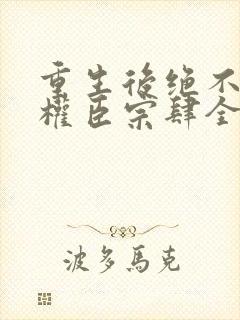 重生後绝不
權臣宗肆全
波多馬克